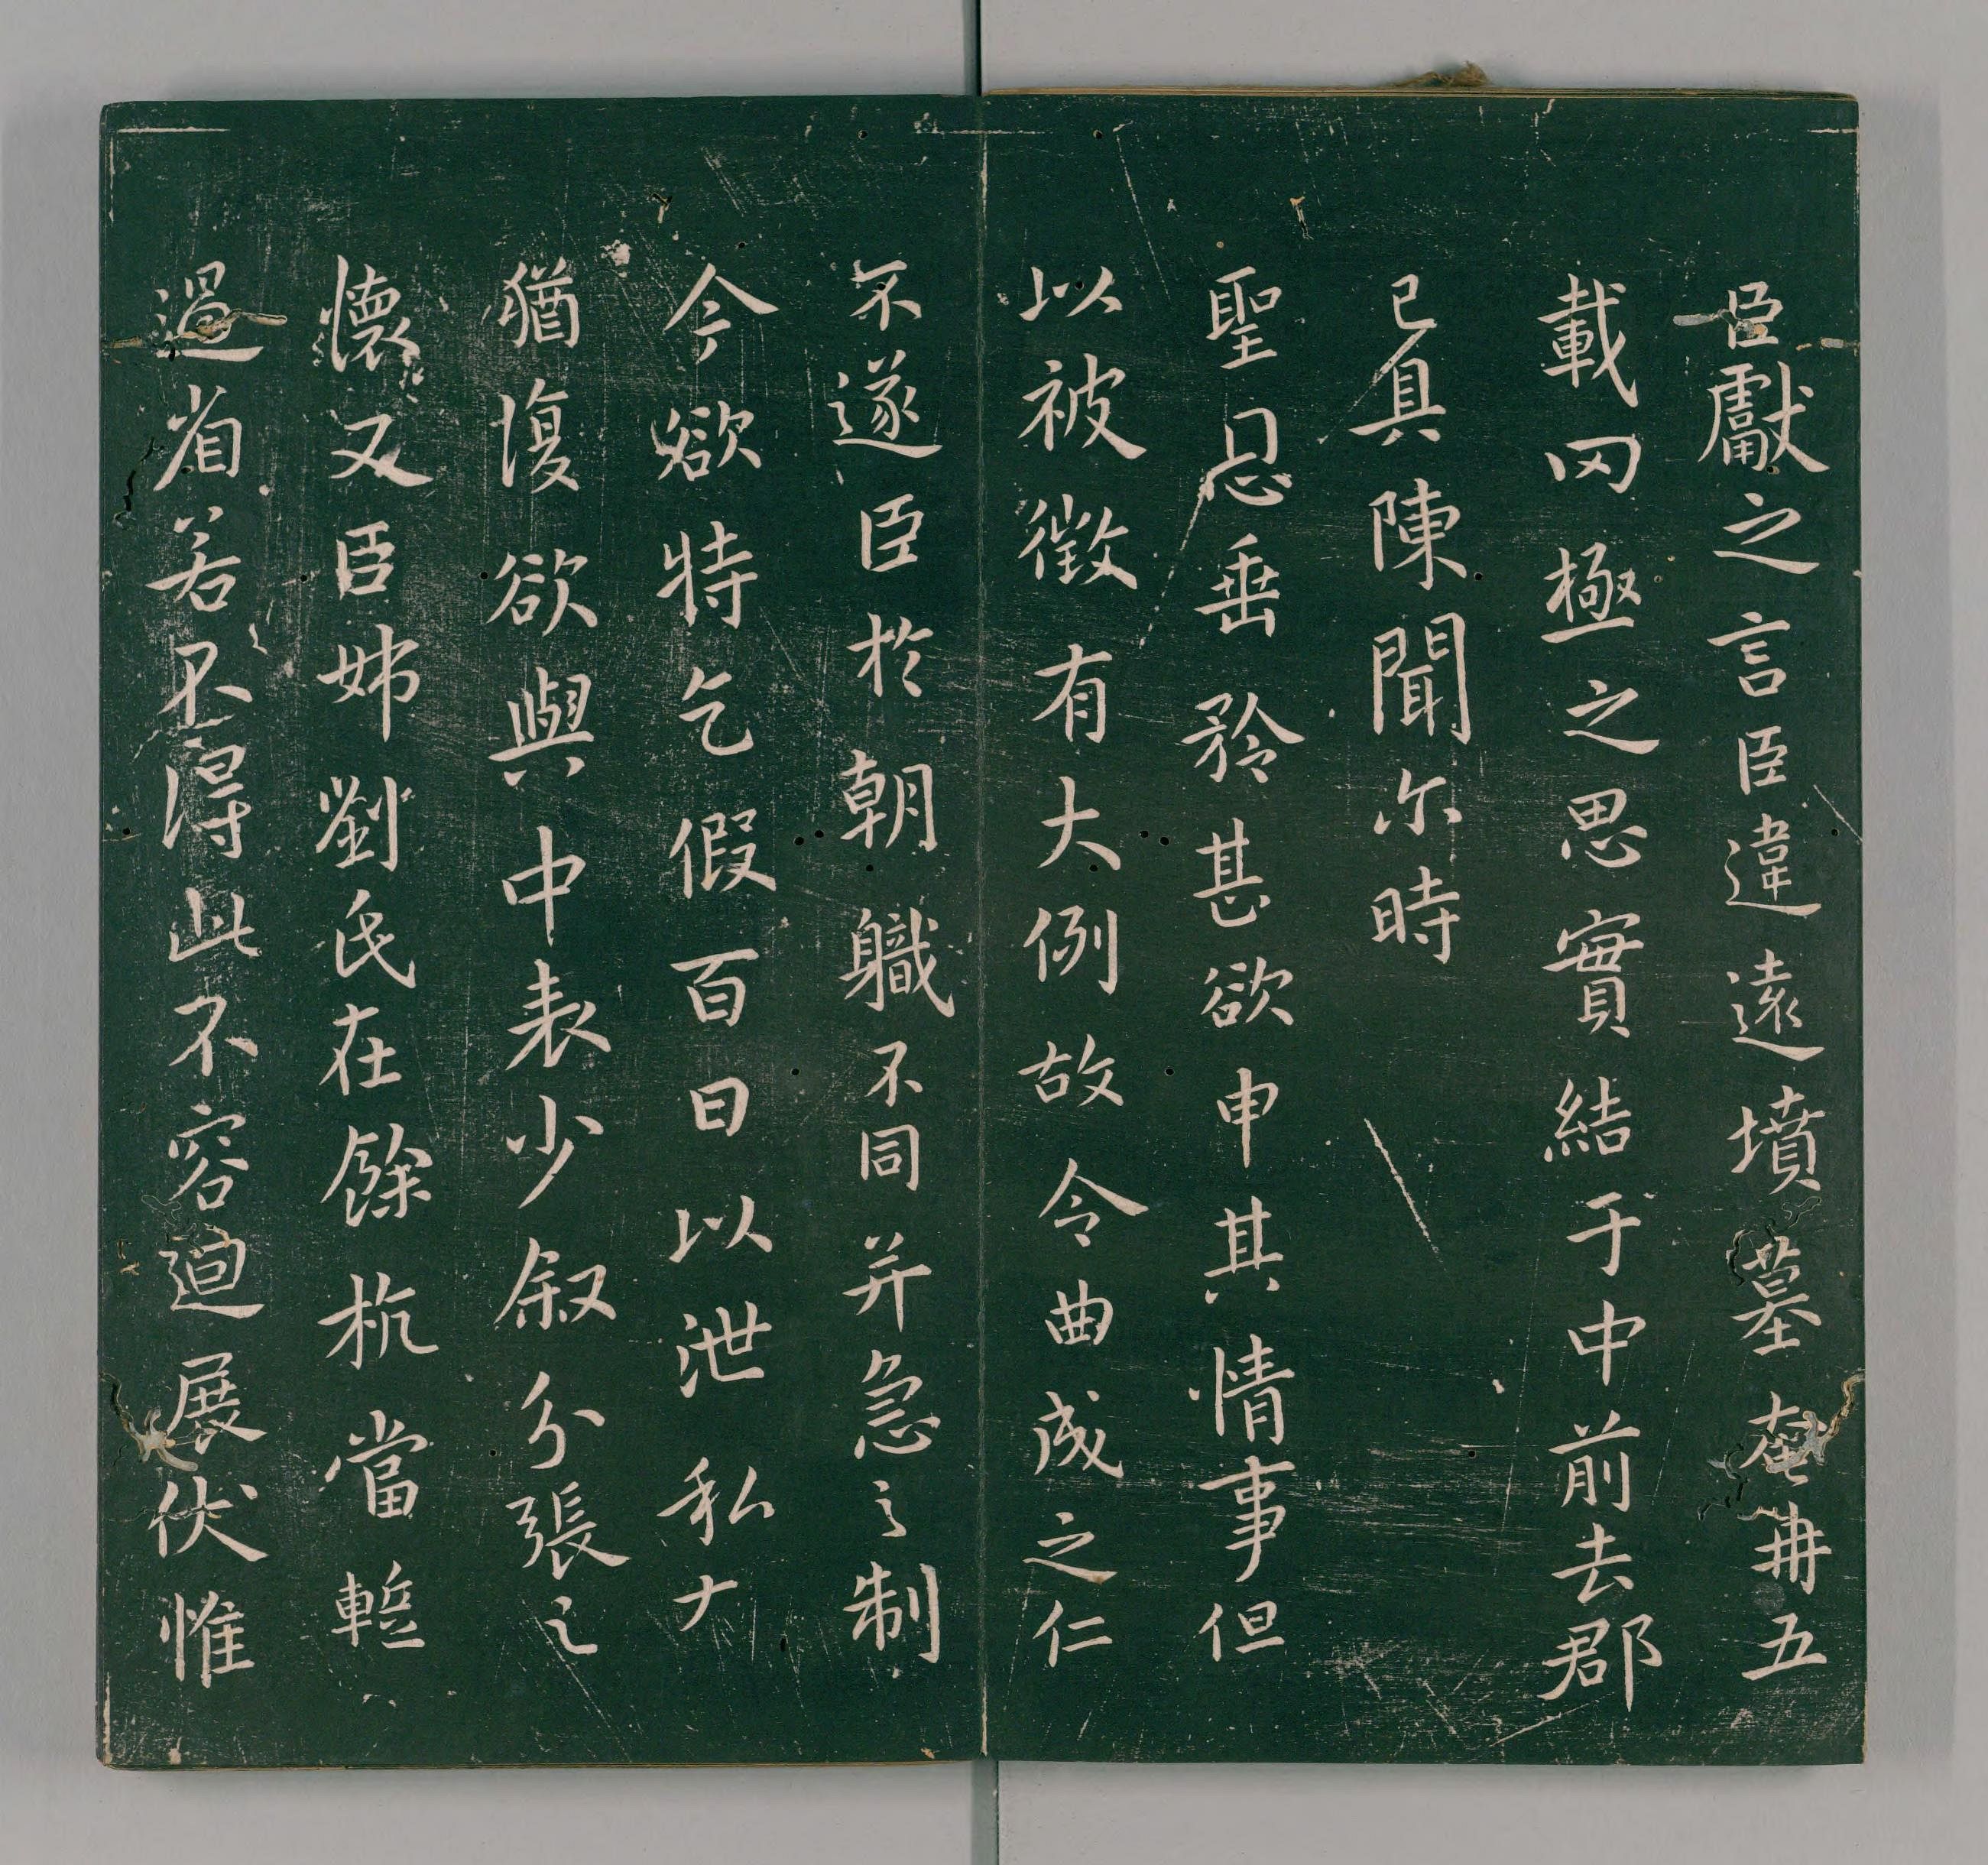 臣獻之言臣違遠墳墓奄冉五
載罔極之思實結于中前去郡
已具陳聞尔時
聖恩垂矜甚欲申其情事但
以被徵有大例故令曲成之仁
不遂臣於朝職不同并急之制
今欲特乞假百日以泄私大
猶復欲與中表少叙分張之
懷又臣姊劉氏在餘杭當蹔
過省若不得此不容迴展伏惟